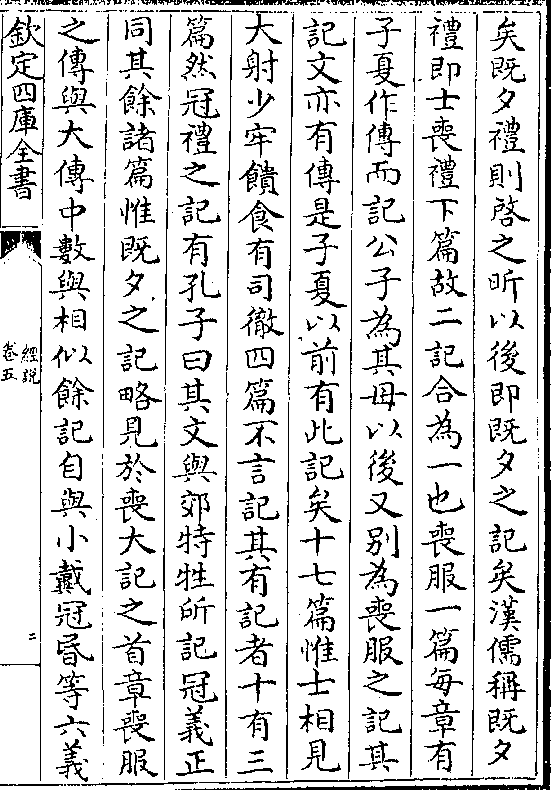 矣既夕禮則啓之昕以後即既夕之記矣漢儒稱既夕
禮即士喪禮下篇故二記合為一也喪服一篇每章有
子夏作傳而記公子為其母以後又别為喪服之記其
記文亦有傳是子夏以前有此記矣十七篇惟士相見
大射少牢饋食有司徹四篇不言記其有記者十有三
篇然冠禮之記有孔子曰其文與郊特牲所記冠義正
同其餘諸篇惟既夕之記略見於喪大記之首章喪服
之傳與大傳中數與相似餘記自與小戴冠昏等六義
欽定四庫全書
經說
卷五
二